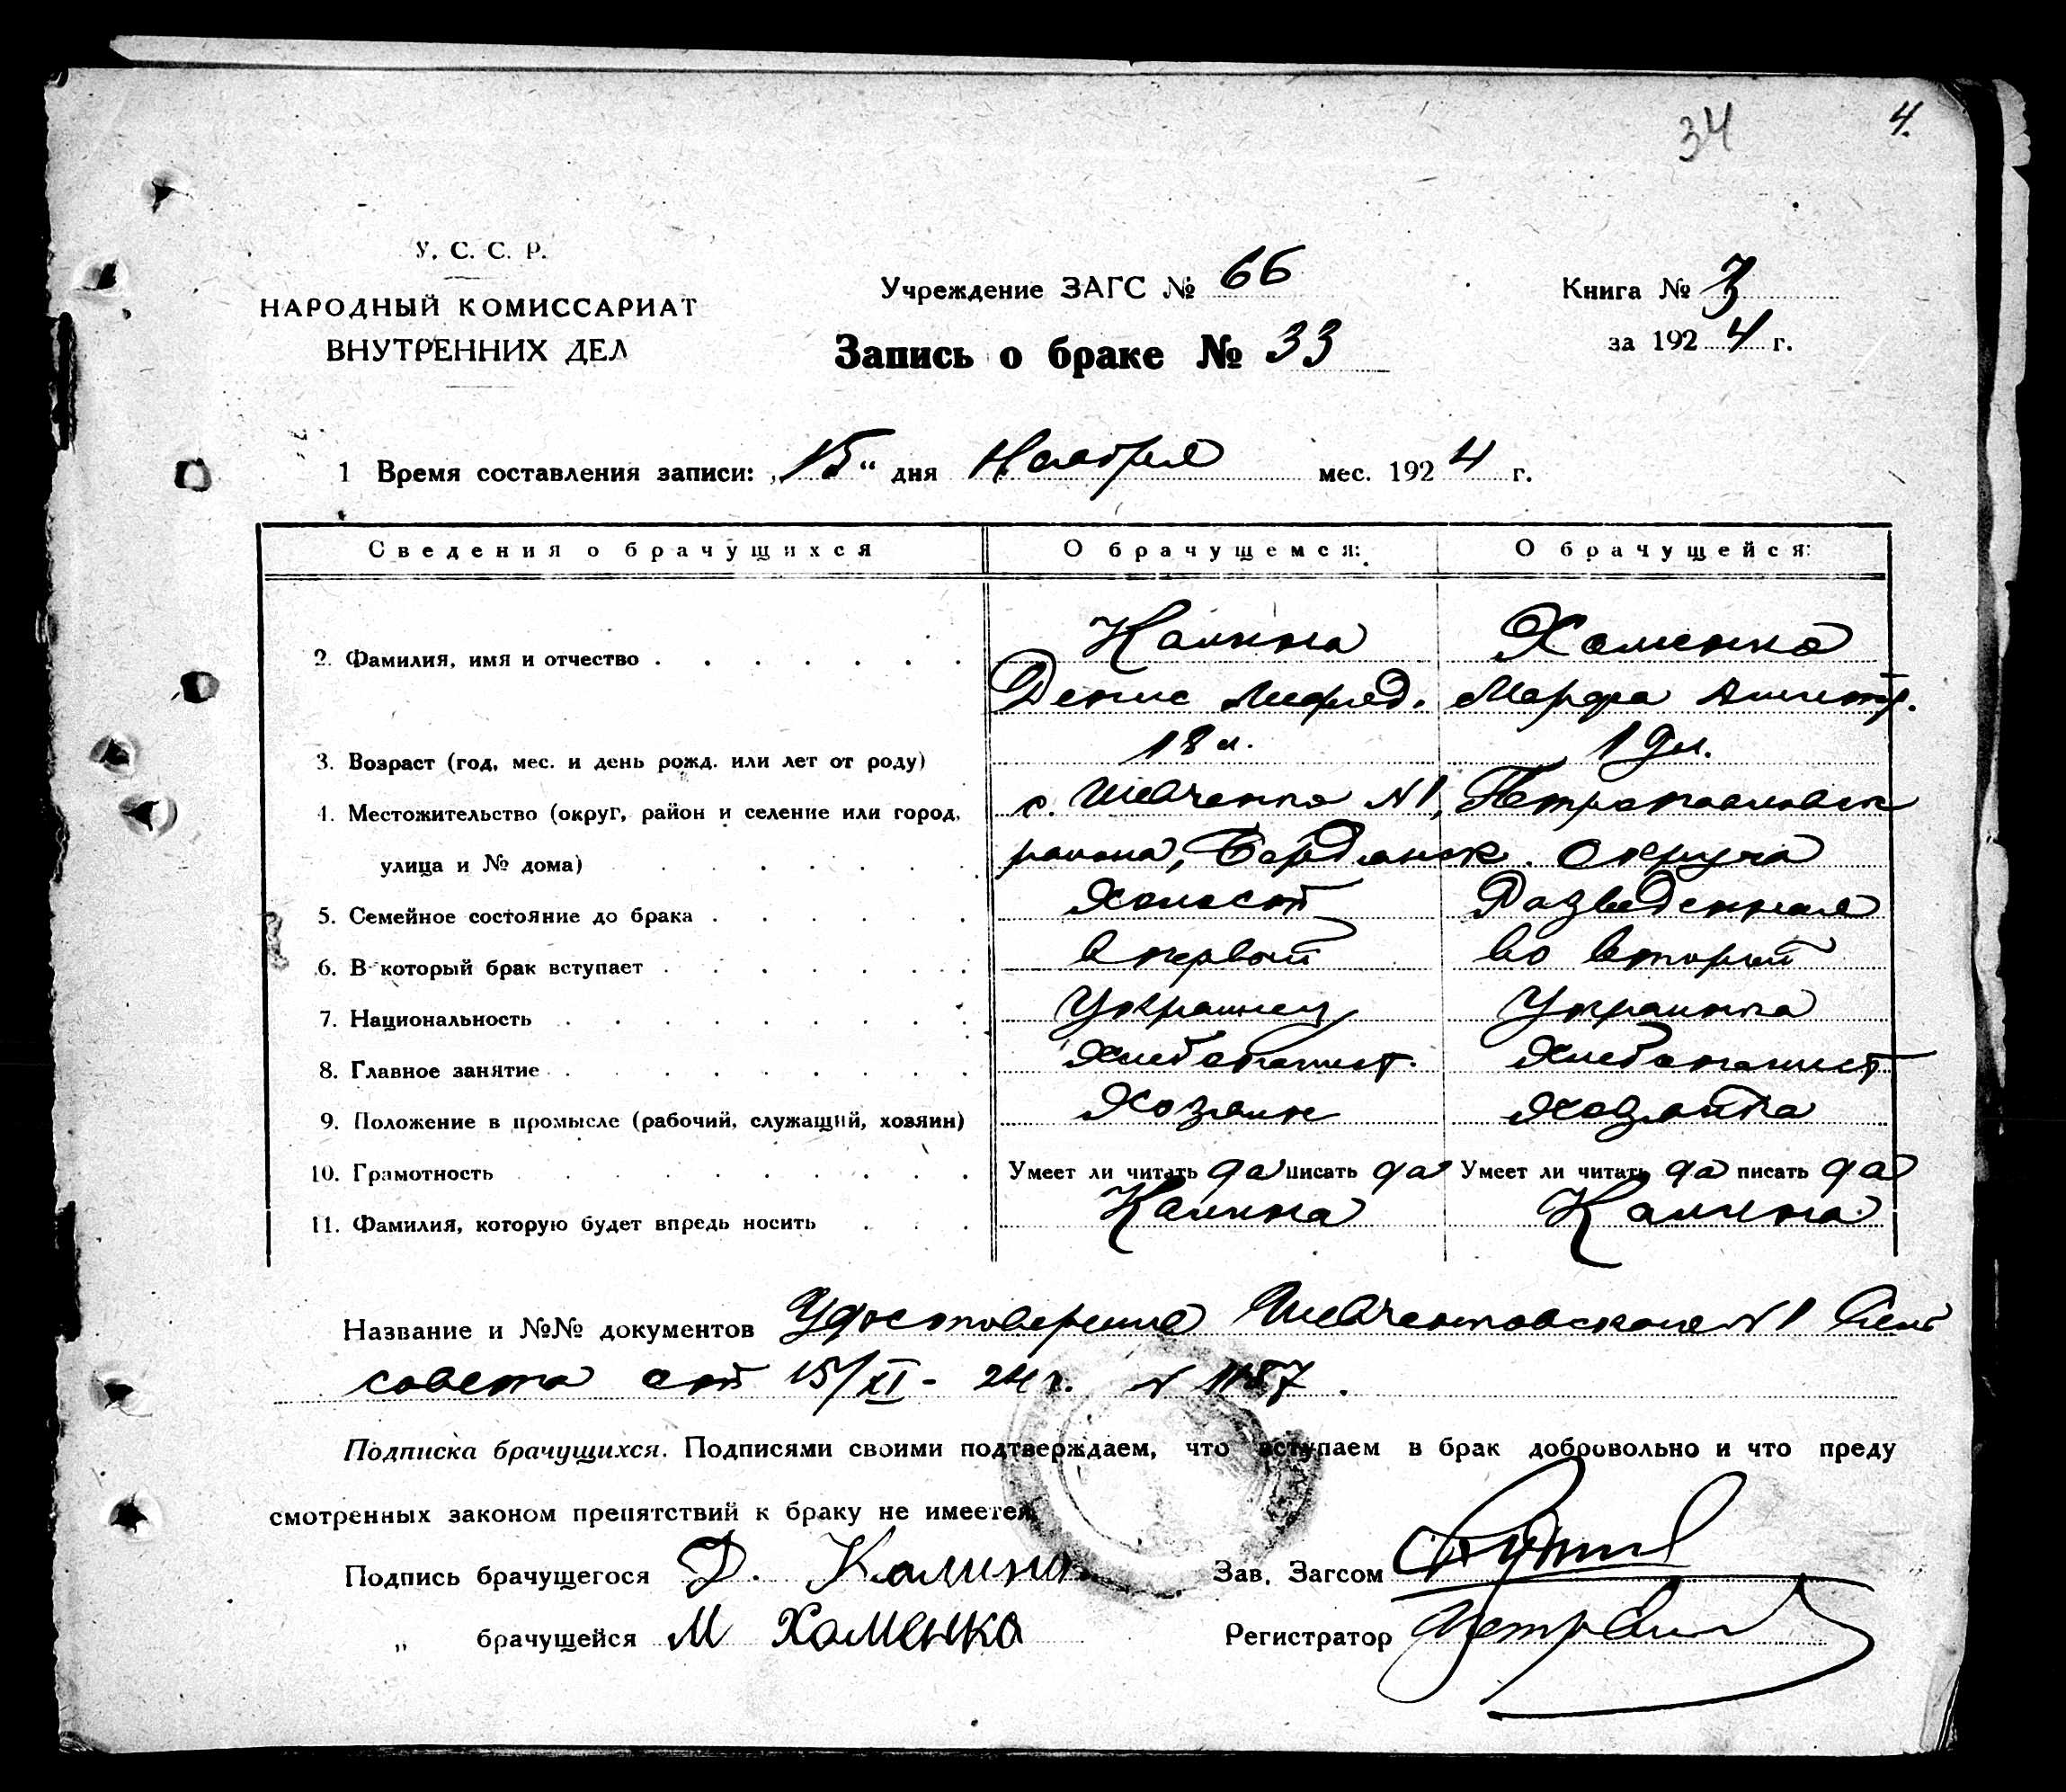 34
4.
У. С. С. Р.
НАРОДНЫЙ КОМИССАРИАТ
ВНУТРЕННИХ ДЕЛ
Учреждение ЗАГС № 66
Книга № 3
Запись о браке № 33
за 1924 г.
1 Время составления записи: „15“ дня Ноября мес. 1924 г.
Сведения о брачущихся О брачущемся: О брачущейся:
Калина Хоменко
2. Фамилия, имя и отчество
Денис Марфа Дмитр.
18 л. 19 л.
3. Возраст (год, мес. и день рожд. или лет от роду)
с. Шевченко №1, Петропавловск
4. Местожительство (округ, район и селение или город,
района, Бердянск. Округа
улица и № дома)
5. Семейное состояние до брака Холост Разведенная
6. В который брак вступает в первый во второй
7. Национальность Украинец Украинка
8. Главное занятие Хлебопашест. Хлебопашест
9. Положение в промысле (рабочий, служащий, хозяин) Хозяин Хозяйка
10. Грамотность Умеет ли читать да писать да Умеет ли читать да писать да
11. Фамилия, которую будет впредь носить Калина Калина
Название и №№ документов Удостоверение Шевченковского №1 Сель
совета от 15/XI - 24 г. № 1187.
Подписка брачущихся. Подписями своими подтверждаем, что вступаем в брак добровольно и что преду
смотренных законом препятствий к браку не имеется.
Подпись брачущегося Д. Калина Зав. Загсом
„ брачущейся М Хоменко Регистратор